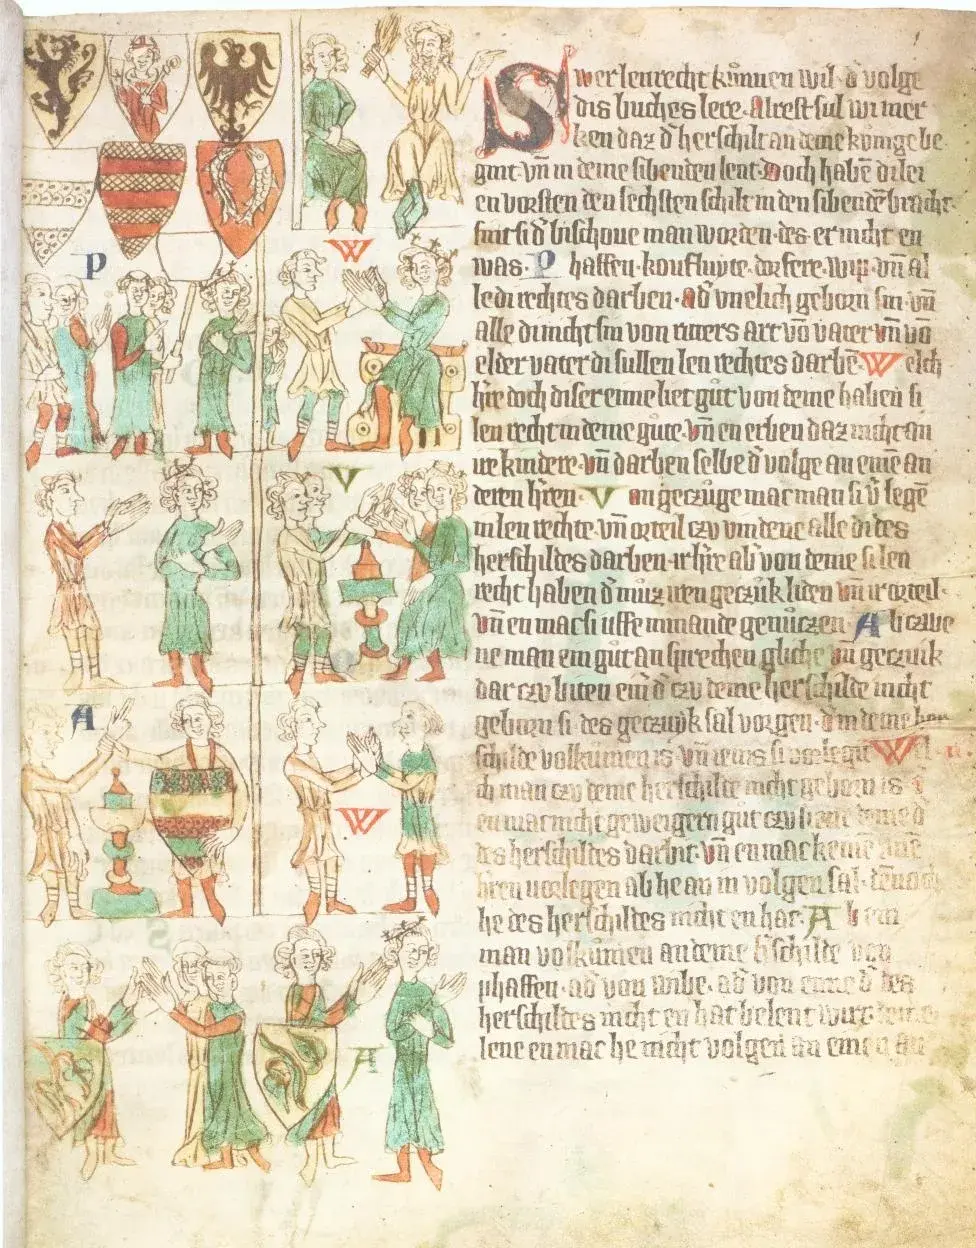 Swer lenrecht kůnnen wil d̄ volge
dis buches lere. Alrest sul wir mer
ken daz d̄ herschilt an deme kůnige be
gint. vn̄ in deme sibenden lent. Doch habē di lei
en vorsten den sechsten schilt in den sibendē bracht.
sint si d̄ bischoue man worden. des er nicht en
was. Phaffen. kouflute. dorfere. wip. vn̄ al
le di rechtes darben. ad̄ vnelich geborn sin. vn̄
alle di nicht sin von ritters art vō vater vn̄ vō
elder vater di sullen lenrechtes darbē. Welch
h̄re doch diser eime liet gůt von deme haben si
lenrecht in deme gute. vn̄ en erben daz nicht an
ire kindere. vn̄ darben selbe d̄ volge an einē an
deren h̄ren. Von geczůge mac man si v̄legē
in lenrechte. vn̄ orteil czu vindene alle di des
herschildes darben. ir h̄re ab̄ von deme si len
recht haben d̄ můz iren geczůk liden vn̄ ir orteil.
vn̄ en mac si uffe nimande genůczen. Ab czwe
ne man ein gůt an sprechen gliche vn̄ geczuik
dar czu biten ein d̄ czu deme herschilde nicht
geborn si. des geczuyk sal vorgen. d̄ in deme her
schilde volkůmen is. vn̄ ienis si vorlegit. Wel
ch man czu deme herschilde nicht geborn is
en mac nicht geweigern gůt czu
des herschildes darbit. vn̄ en mac keine
h̄ren vorlegen ab he an in volgen sal.
he des herschildes nicht en hat. Ab ein
man volkůmen an deme h̄schilde von
phaffen. ad̄ von wibe. ad̄ von eime d̄ des
herschildes nicht en hat belent wirt
lene en mac he nicht volgen an einen
P
W
V
A
W
A